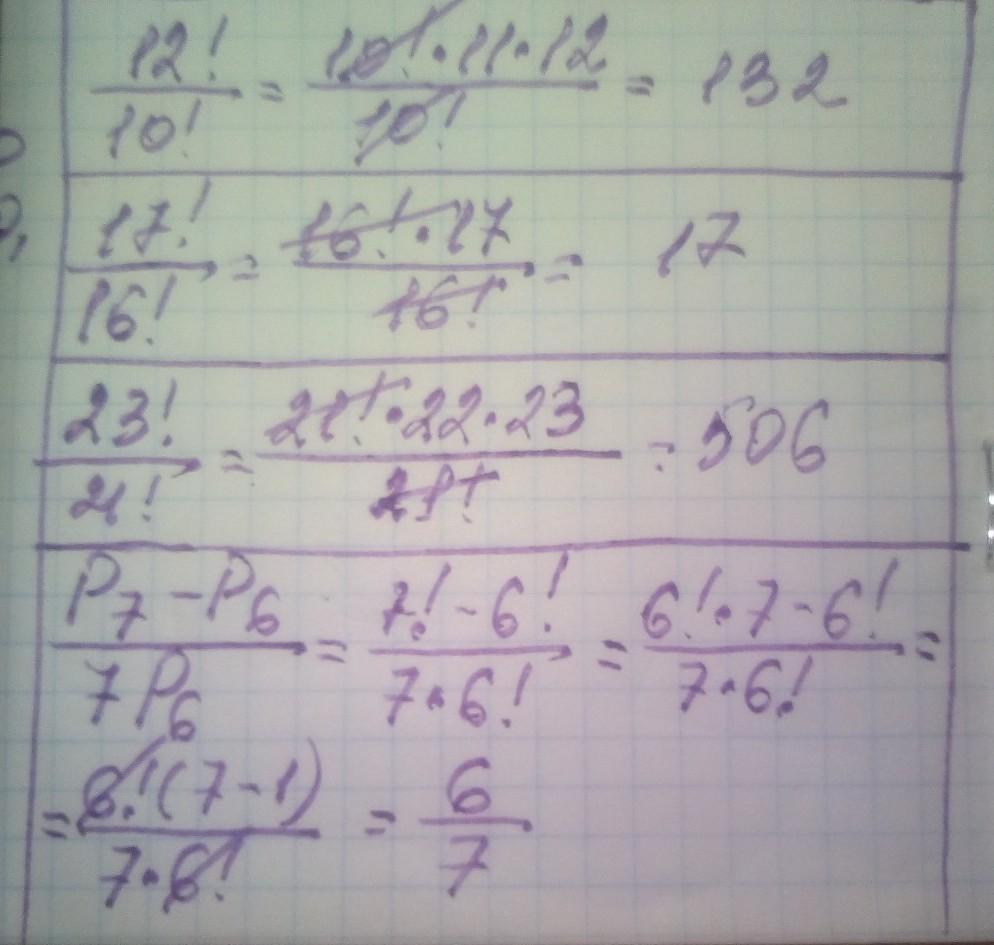 12!/10! = 10!·11·12/10! = 132
17!/16! = 16!·17/16! = 17
23!/21! = 21!·22·23/21! = 506
P₇-P₆/7P₆ = 7!-6!/7·6! = 6!·7-6!/7·6! =
= 6!(7-1)/7·6! = 6/7